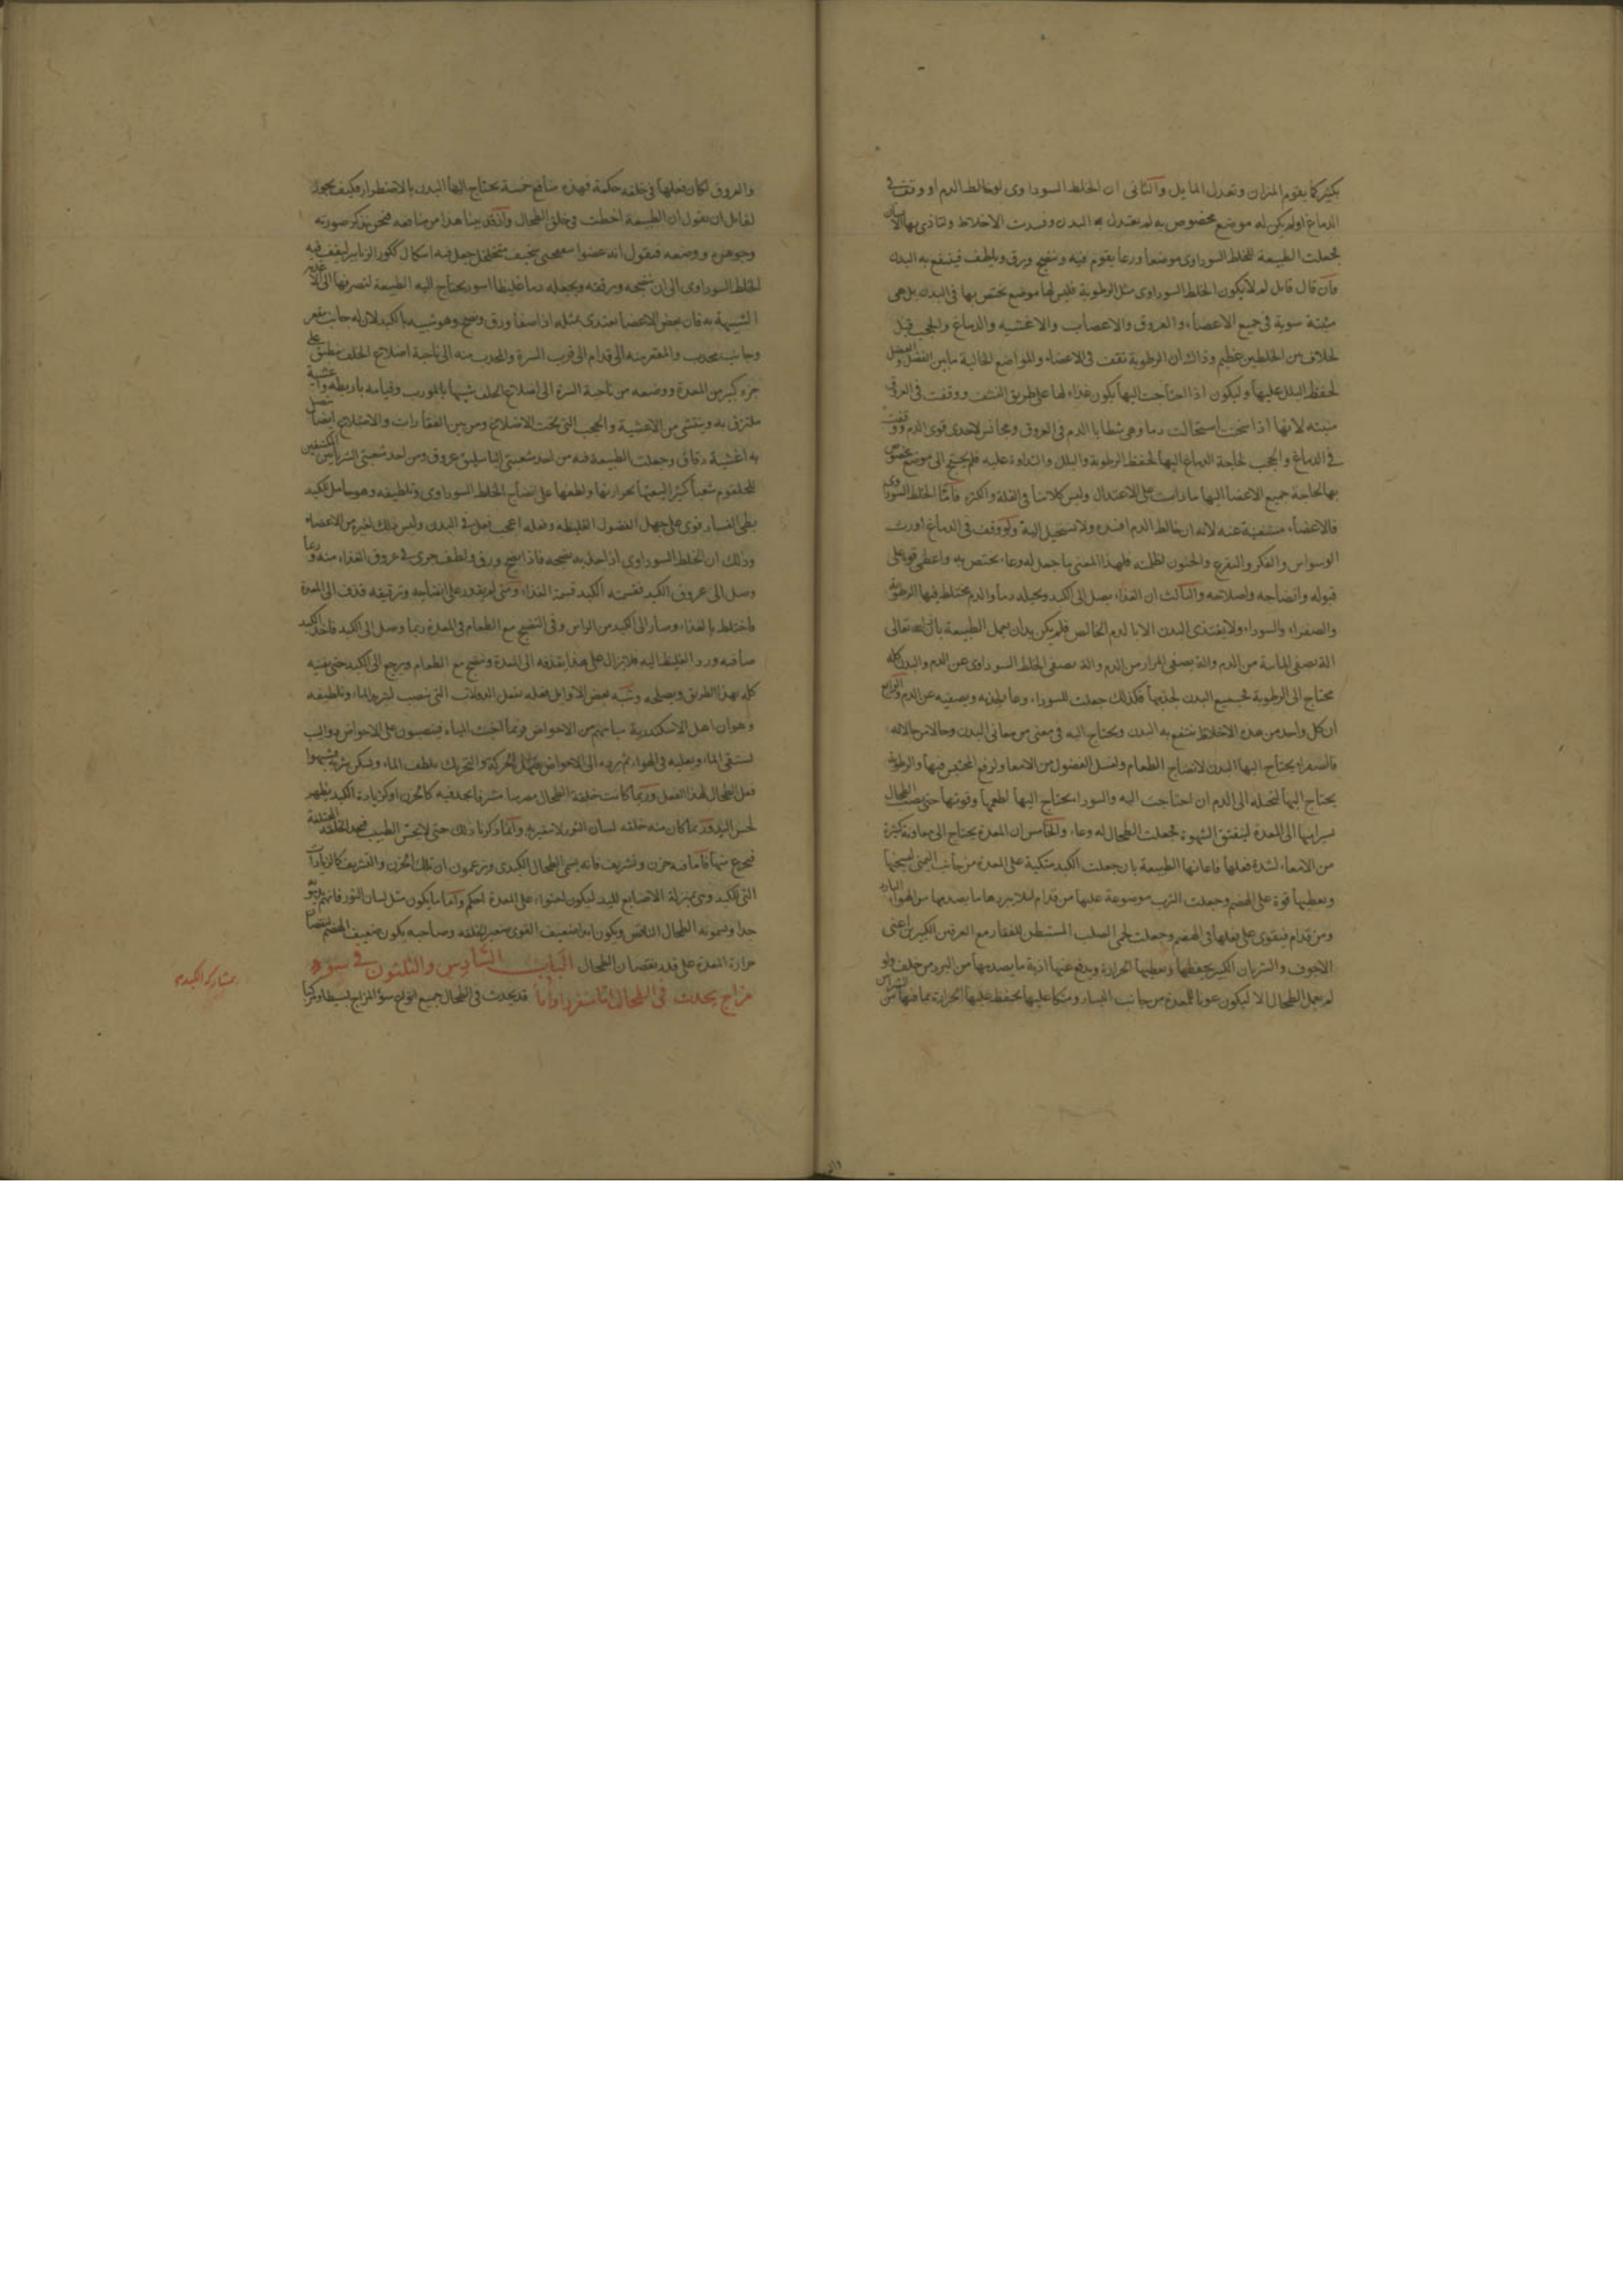 بكثير كما يقوم الميزان وتعدل المايل والثاني ان الخلط السوداوى لو خالط الدم او وقف في
الدماغ او لم يكن له موضع مخصوص به لم يعتدل به البدن وفسدت الاخلاط ولتاذى بها الانسان
فجعلت الطبيعة للخلط السوداوى موضعا ورعا يقوم فيه وينضج ويرق ويلطف فينتفع به البدن
فان قال قايل لم لا يكون الخلط السوداوى مثل الرطوبة فليس لها موضع تختص بها في البدن بل هى
مثبتة سوية في جميع الاعضاء والعروق والاعصاب والاغشيه والدماغ والحجب قيل
الخلاف بين الخلطين عظيم وذاك ان الرطوبة تقف في الاعضاء والمواضع الخالية ما بين العضل
لحفظ البلل عليها وليكون اذا احتاجت اليها يكون غذاء لها على طريق النشف ووقفت في العروق
مبثه لانها اذا سخنت استحالت دما وهى شظايا الدم في العروق ومجانس لاحدى قوى الدم ووقفت
في الدماغ والحجب لحاجة الدماغ اليها لحفظ الرطوبة والبلل والنداوة عليه فلم يحتج الى موضع مخصوص
بها لحاجة جميع الاعضا اليها ما دامت على الاعتدال وليس كلامنا في القلة والكثره فاما الخلط السوداوى
فالاعضاء مستغنية عنه لانه ان خالط الدم افسده ولا يستحيل اليه ولو وقف في الدماغ اورث
الوسواس والفكر والتفزع والجنون لظلمته فلهذا المعنى ما جعل له وعاء يختص به واعطى قوة على
قبوله وانضاجه واصلاحه والثالث ان الغذاء يصل الى الكبد ويحيله دما والدم مختلط فيها الرطوبة
والصفراء والسوداء ولا يغتذى البدن الا بالدم الخالص فلم يكن بد ان يعمل الطبيعة باذن الله تعالى
الة تصفى المائية من الدم والة يصفى المرار من الدم والة تصفى الخلط السوداوى عن الدم والبدن كله
محتاج الى الرطوبة فجميع البدن لجذبها فكذلك جعلت للسوداء وعا يجذبه ويصفيه عن الدم والرابع
ان كل واحد من هذه الاخلاط ينتفع به البدن ويحتاج اليه في معنى من معانى البدن وحالا من حالاته
فالصفراء يحتاج اليها البدن لانضاج الطعام ولغسل الفضول من الامعا ولرفع المحتبس فيها والرطوبة
يحتاج اليها لتحيله الى الدم ان احتاجت اليه والسوداء يحتاج اليها لطعمها وقوتها حتى يصب الطحال
يسيرا منها الى المعدة لينفتق الشهوة فجعلت الطحال له وعاء والخامس ان المعدة يحتاج الى معاونة كثيرة
من الامعاء لشدة فعلها فاعانها الطبيعة بان جعلت الكبد متكية على المعدة من جانب اليمنى ليسخنها
ويعطيها قوة على الهضم وجعلت الثرب موضوعة عليها من قدام ليلا يبردها ما يصدمها من الهواء البارد
ومن قدام فيقوى على فعلها في الهضم وجعلت لحمى الصلب المستبطن للفقار مع العرقين الكبيرين اعنى
الاجوف والشريان الكبير يحفظها ويعطيها الحرارة ويدفع عنها اذية ما يصدمها من البرد من خلف ولو
لم يعمل الطحال الا ليكون عونا للمعدة من جانب اليسار ومتكا عليها يحفظ عليها الحرارة بما فيها من الشرايين
والعروق لكان فعلها في خلقه حكمة فهذه منافع خمسة يحتاج اليها البدن بالاضطرار فكيف يجوز
لقايل ان يقول ان الطبيعة اخطت في خلق الطحال واذ قد بينا هذا من منافعه فنحن نذكر صورته
وجوهره ووضعه فنقول انه عضو اسفنجى سخيف متخلخل جعل فيه اشكال ككور الزنابير ليقف فيه
الخلط السوداوى الى ان ينضجه ويرققه ويجعله دما غليظا اسود يحتاج اليه الطبيعة لتصرفها الى الاعضا
الشبيهة به فان بعض الاعضا تغتدى بمثله اذا صفا ورق ونضج وهو شبيه بالكبد لان له جانب مقعر
وجانب محدب والمقعر منه الى قدام الى قرب السرة والمحدب منه الى ناحية اضلاع الخلف منطبق على
جزء كبير من المعدة ووضعه من ناحية السرة الى اضلاع الخلف شبيها بالمورب وقيامه باربطة واغشية
ملتزق به وينتشى من الاغشية والحجب التى تحت الاضلاع ومن بين الفقارات والاضلاع ايضا يتصل
به اغشية دقاق وجعلت الطبيعة فيه من احد شعبتى الباسليق عروق ومن احد شعبتى الشريانين المكتنفين
للحلقوم شعبا كثيرا ليعينها بحرارتها ولطفها على انضاج الخلط السوداوى وتلطيفه وهو حامل للكبد
بطى الفساد قوى على جهل الفضول الغليظه وفعله اعجب فعل في البدن وليس ذلك لغيره من الاعضاء
وذلك ان الخلط السوداوى اذا جذبه ينضجه فاذا نضج ورق ولطف جرى في عروق الغذاء منه وربما
وصل الى عروق الكبد فقسمته الكبد قسمة الغذاء ومتى لم يقدر على انضاجه وترقيقه قذف الى المعدة
فاختلط بالغذاء وصار الى الكبد من الراس وفى النضج مع الطعام في المعدة ربما وصل الى الكبد فاخذ الكبد
صافيه ورد الغليظ اليه فلا يزال على هذا يقذفه الى المعدة وينضج مع الطعام ويرجع الى الكبد حتى يفنيه
كله بهذا الطريق ويصلحه وشبه بعض الاوايل فعله بفعل الدولاب التى ينصب لتبريد الماء وتلطيفه
وهو ان اهل الاسكندرية مياههم من الاحواض وربما اجنت المياه فينصبون على الاحواض دواليب
لستقى الماء ويعليه في الهواء ثم يرده الى الاحواض فبتلك الحركة والتحريك يلطف الماء ويمكن شربه فشبهوا
فعل الطحال لهذا الفعل وربما كانت خلقة الطحال مضرسا مشرفا بحد فيه كالحزن او كزيادة الكبد يظهر
لحس اليد وربما كان منه خلقه لسان الثور لا تشريح وانما ذكرنا ذلك حتى لا يحس الطبيب فيجد الخلقة المختلفة
فيجزع منها فاما فيه حزن وتشريف فانه يسمى الطحال الكبدى ويزعمون ان تلك الحزن والتشريف كالزيادات
التى للكبد وهى بمنزلة الاصابع لليد ليكون احتواءه على المعدة احكم واما ما يكون مثل لسان الثور فانهم
جدا ويسمونه الطحال الناقص ويكون ابدا ضعيف القوى صغير الخلقه وصاحبه يكون ضعيف الهضم
حرارة المعدة على قدر نقصان الطحال الباب السادس والثلثون في سوء
مزاج يحدث في الطحال اما منفردا واما قد يحدث في الطحال جميع انواع سوء المزاج بسيطا ومركبا
بمشاركه الكبد